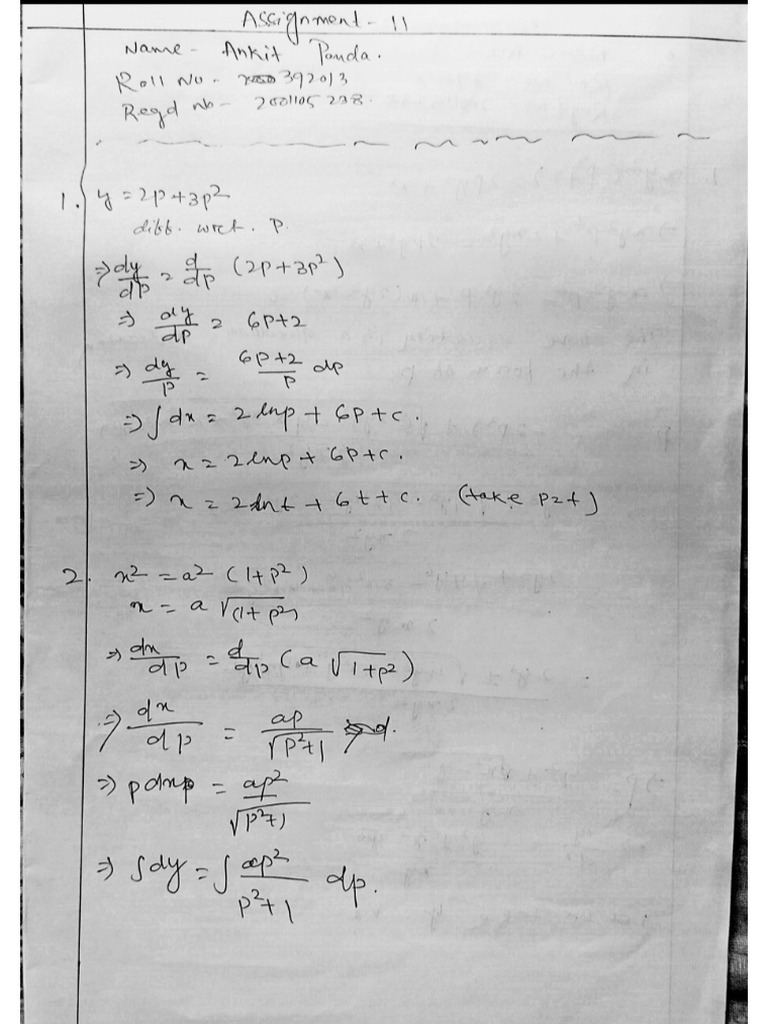 Assignment - 11
Name - Ankit Panda.
Roll No - 392013
Regd no - 2001105238.
1. y = 2p + 3p²
diff. wret. P.
⇒ dy/dp = d/dp (2p + 3p²)
⇒ dy/dp = 6p+2
⇒ dy/p = 6p+2/p dp
⇒ ∫dx = 2lnp + 6p + c.
⇒ x = 2lnp + 6p + c.
⇒ x = 2lnt + 6t + c. (take p=t)
2. x² = a² (1+p²)
x = a √(1+p²)
⇒ dx/dp = d/dp (a √1+p²)
⇒ dx/dp = ap/√p²+1
⇒ pdxp = ap²/√p²+1
⇒ ∫dy = ∫ ap²/p²+1 dp.